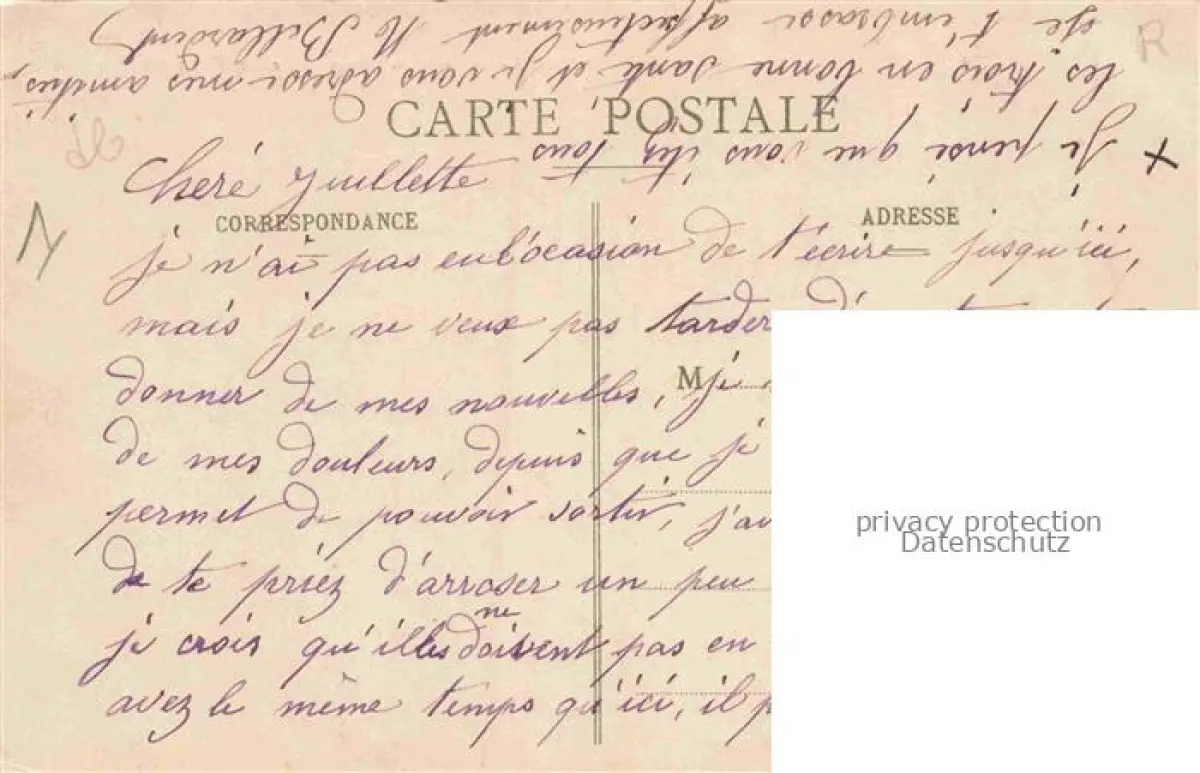 CARTE POSTALE
CORRESPONDANCE
ADRESSE
Cheré Juillette
je n'ai pas eu l'ocasion de t'écrire jusqu'ici,
mais je ne veux pas tarder
donner de mes nouvelles, je
M
de mes douleurs, depuis que je
permet de pouvoir sortir, j'av
de te priez d'arroser un peu
je crois qu'illes ne doivent pas en
avez le même temps qu'ici, il p
Je pense que vous êtes tous
les trois en bonne santé et je vous adresse mes amitiés,
Je t'embrasse affectueusement
privacy protection
Datenschutz
R